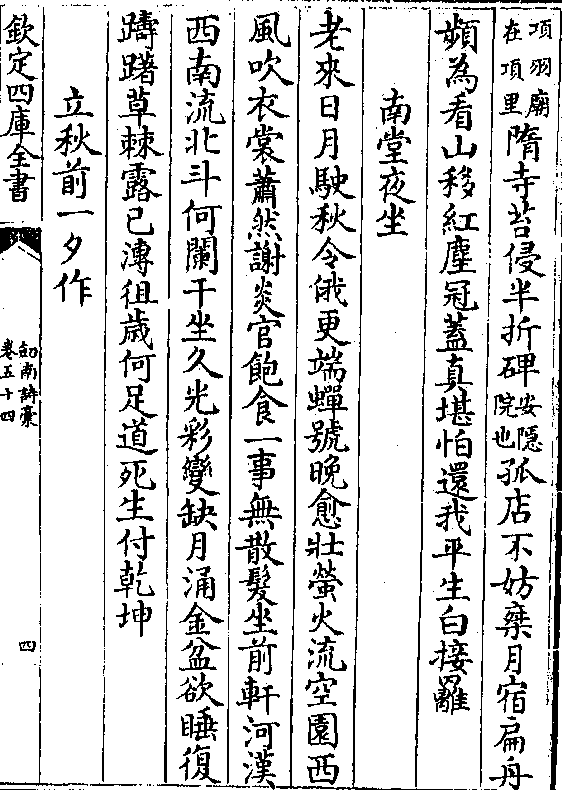 項羽廟在項里隋寺苔侵半折碑安隱院也孤店不妨乗月宿扁舟
頻為看山移紅塵冠蓋真堪怕還我平生白接䍦
南堂夜坐
老來日月駛秋令俄更端蟬號晚愈壯螢火流空園西
風吹衣裳蕭然謝炎官飽食一事無散髮坐前軒河漢
西南流北斗何闌干坐久光彩變缺月涌金盆欲睡復
躊躇草棘露已漙徂歲何足道死生付乾坤
立秋前一夕作
欽定四庫全書
劍南詩稾
卷五十四
四